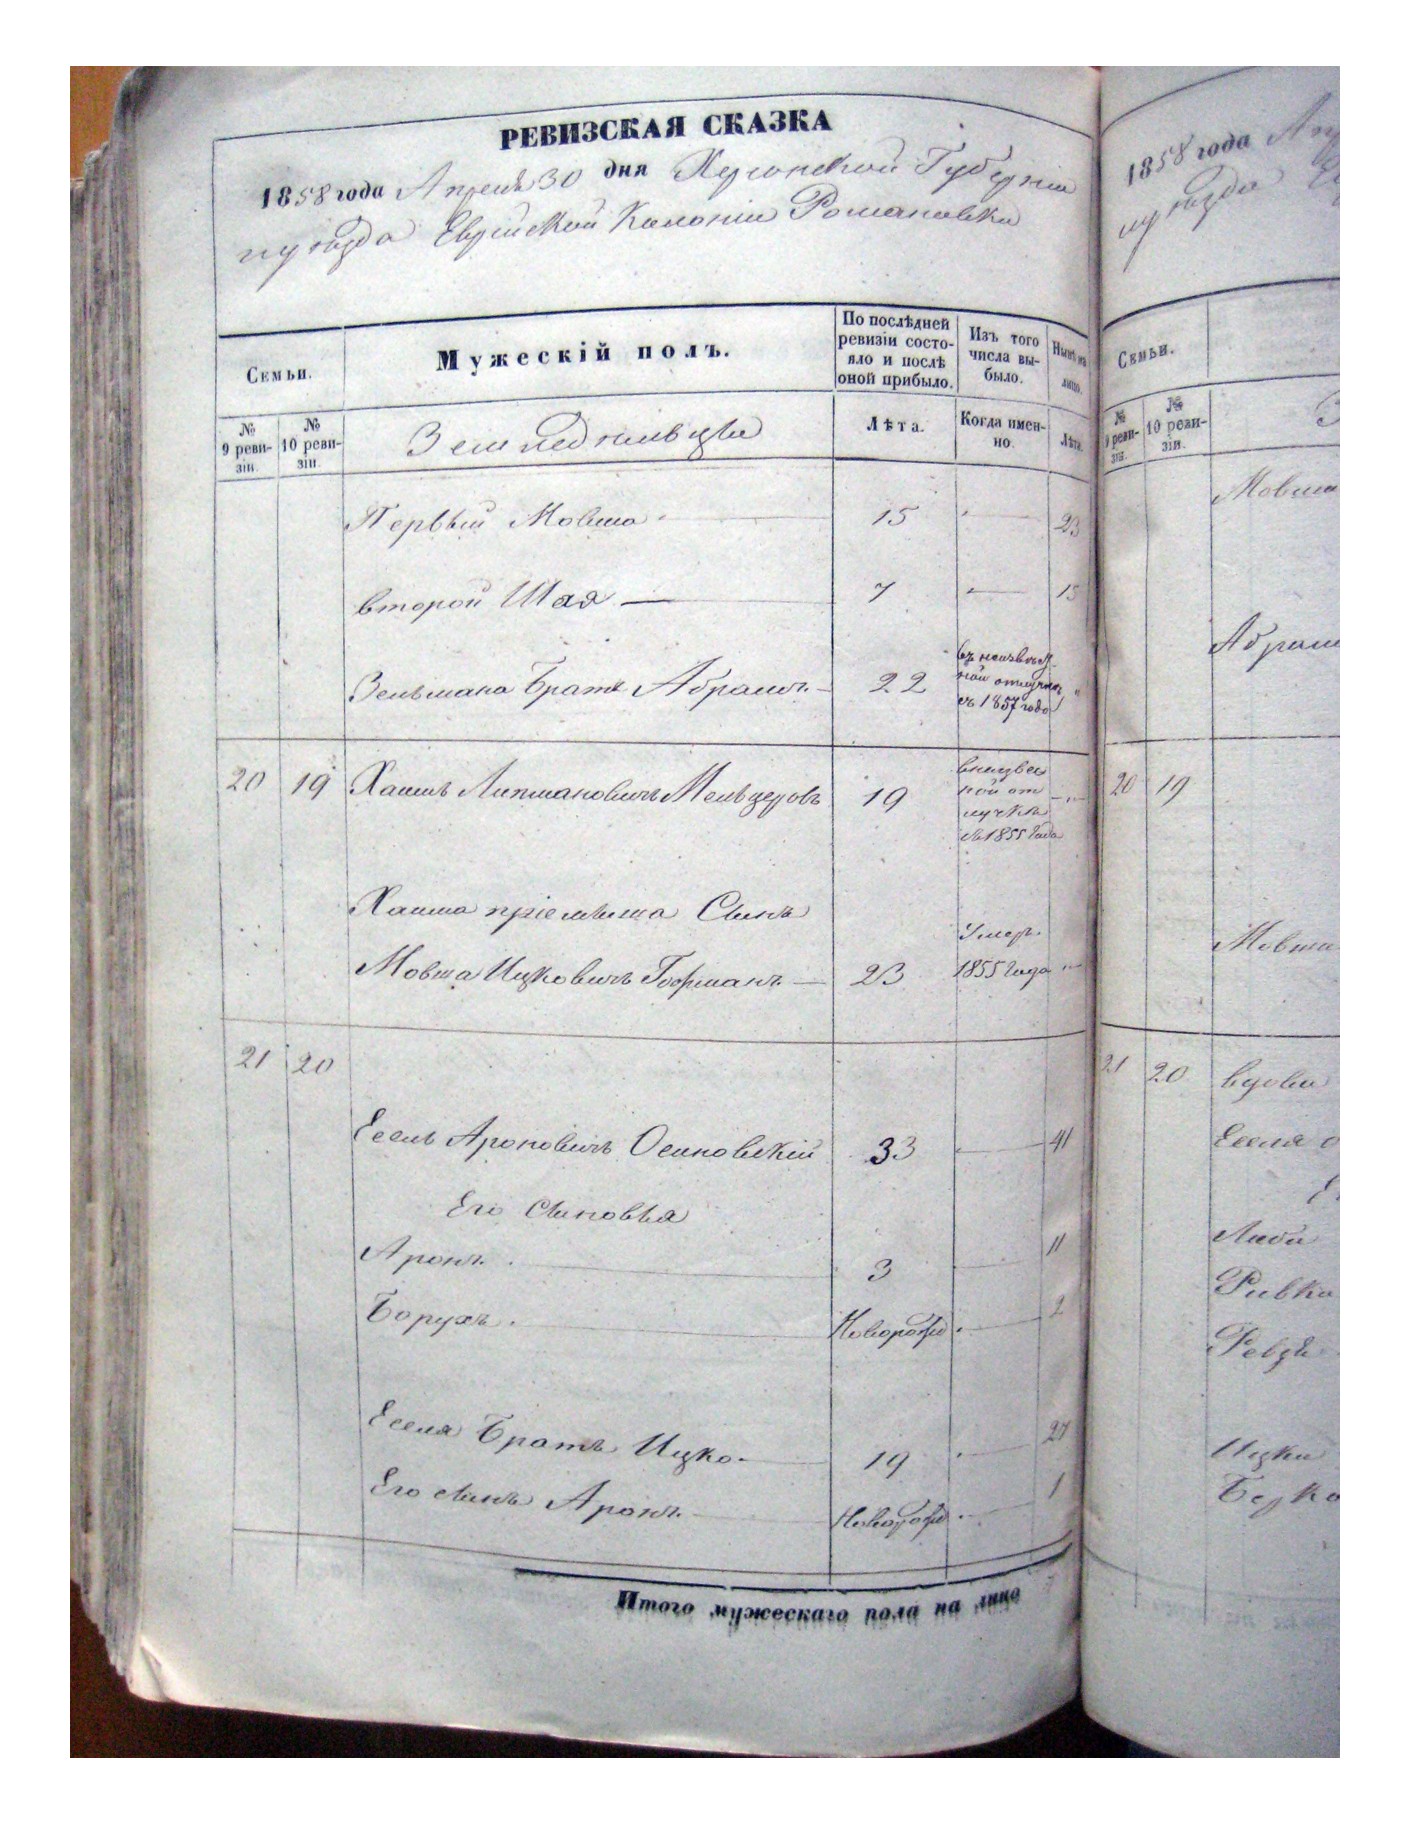 РЕВИЗСКАЯ СКАЗКА
1858 года Апреля 30 дня Херсонской Губернии
и уѣзда Еврейской Колоніи Романовки
Семьи.
Мужескій полъ.
По послѣдней ревизіи состояло и послѣ оной прибыло.
Изъ того числа выбыло.
Нынѣ на лицо.
№ 9 ревизіи.
№ 10 ревизіи.
Земледѣльцы
Лѣта.
Когда именно.
Лѣта.
Первый Мовша 15 23
второй Шая 7 15
Зельмана Братъ Абрамъ 22 въ неизвѣстной отлучкѣ съ 1857 года "
20 19 Хаимъ Липмановичъ Мельцеровъ 19 в неизвес ной отлучкѣ съ 1855 Года "
Хаима пріемыша Сынъ
Мовша Ицковичъ Гофманъ 23 Умер. 1855 Года "
21 20
Есель Ароновичъ Осиновскій 33 41
Его Сыновья
Аронъ. 3 11
Борухъ. Новорож 2
Еселя Братъ Ицко 19 27
Его сынъ Аронъ. Новорож 1
Итого мужескаго пола на лицо
1858 года
уѣзда
Семьи.
№ 9 ревизіи.
№ 10 ревизіи.
Мовша
Абрам
20 19
Мовши
21 20 вдова
Еселя
Ривка
Ицки